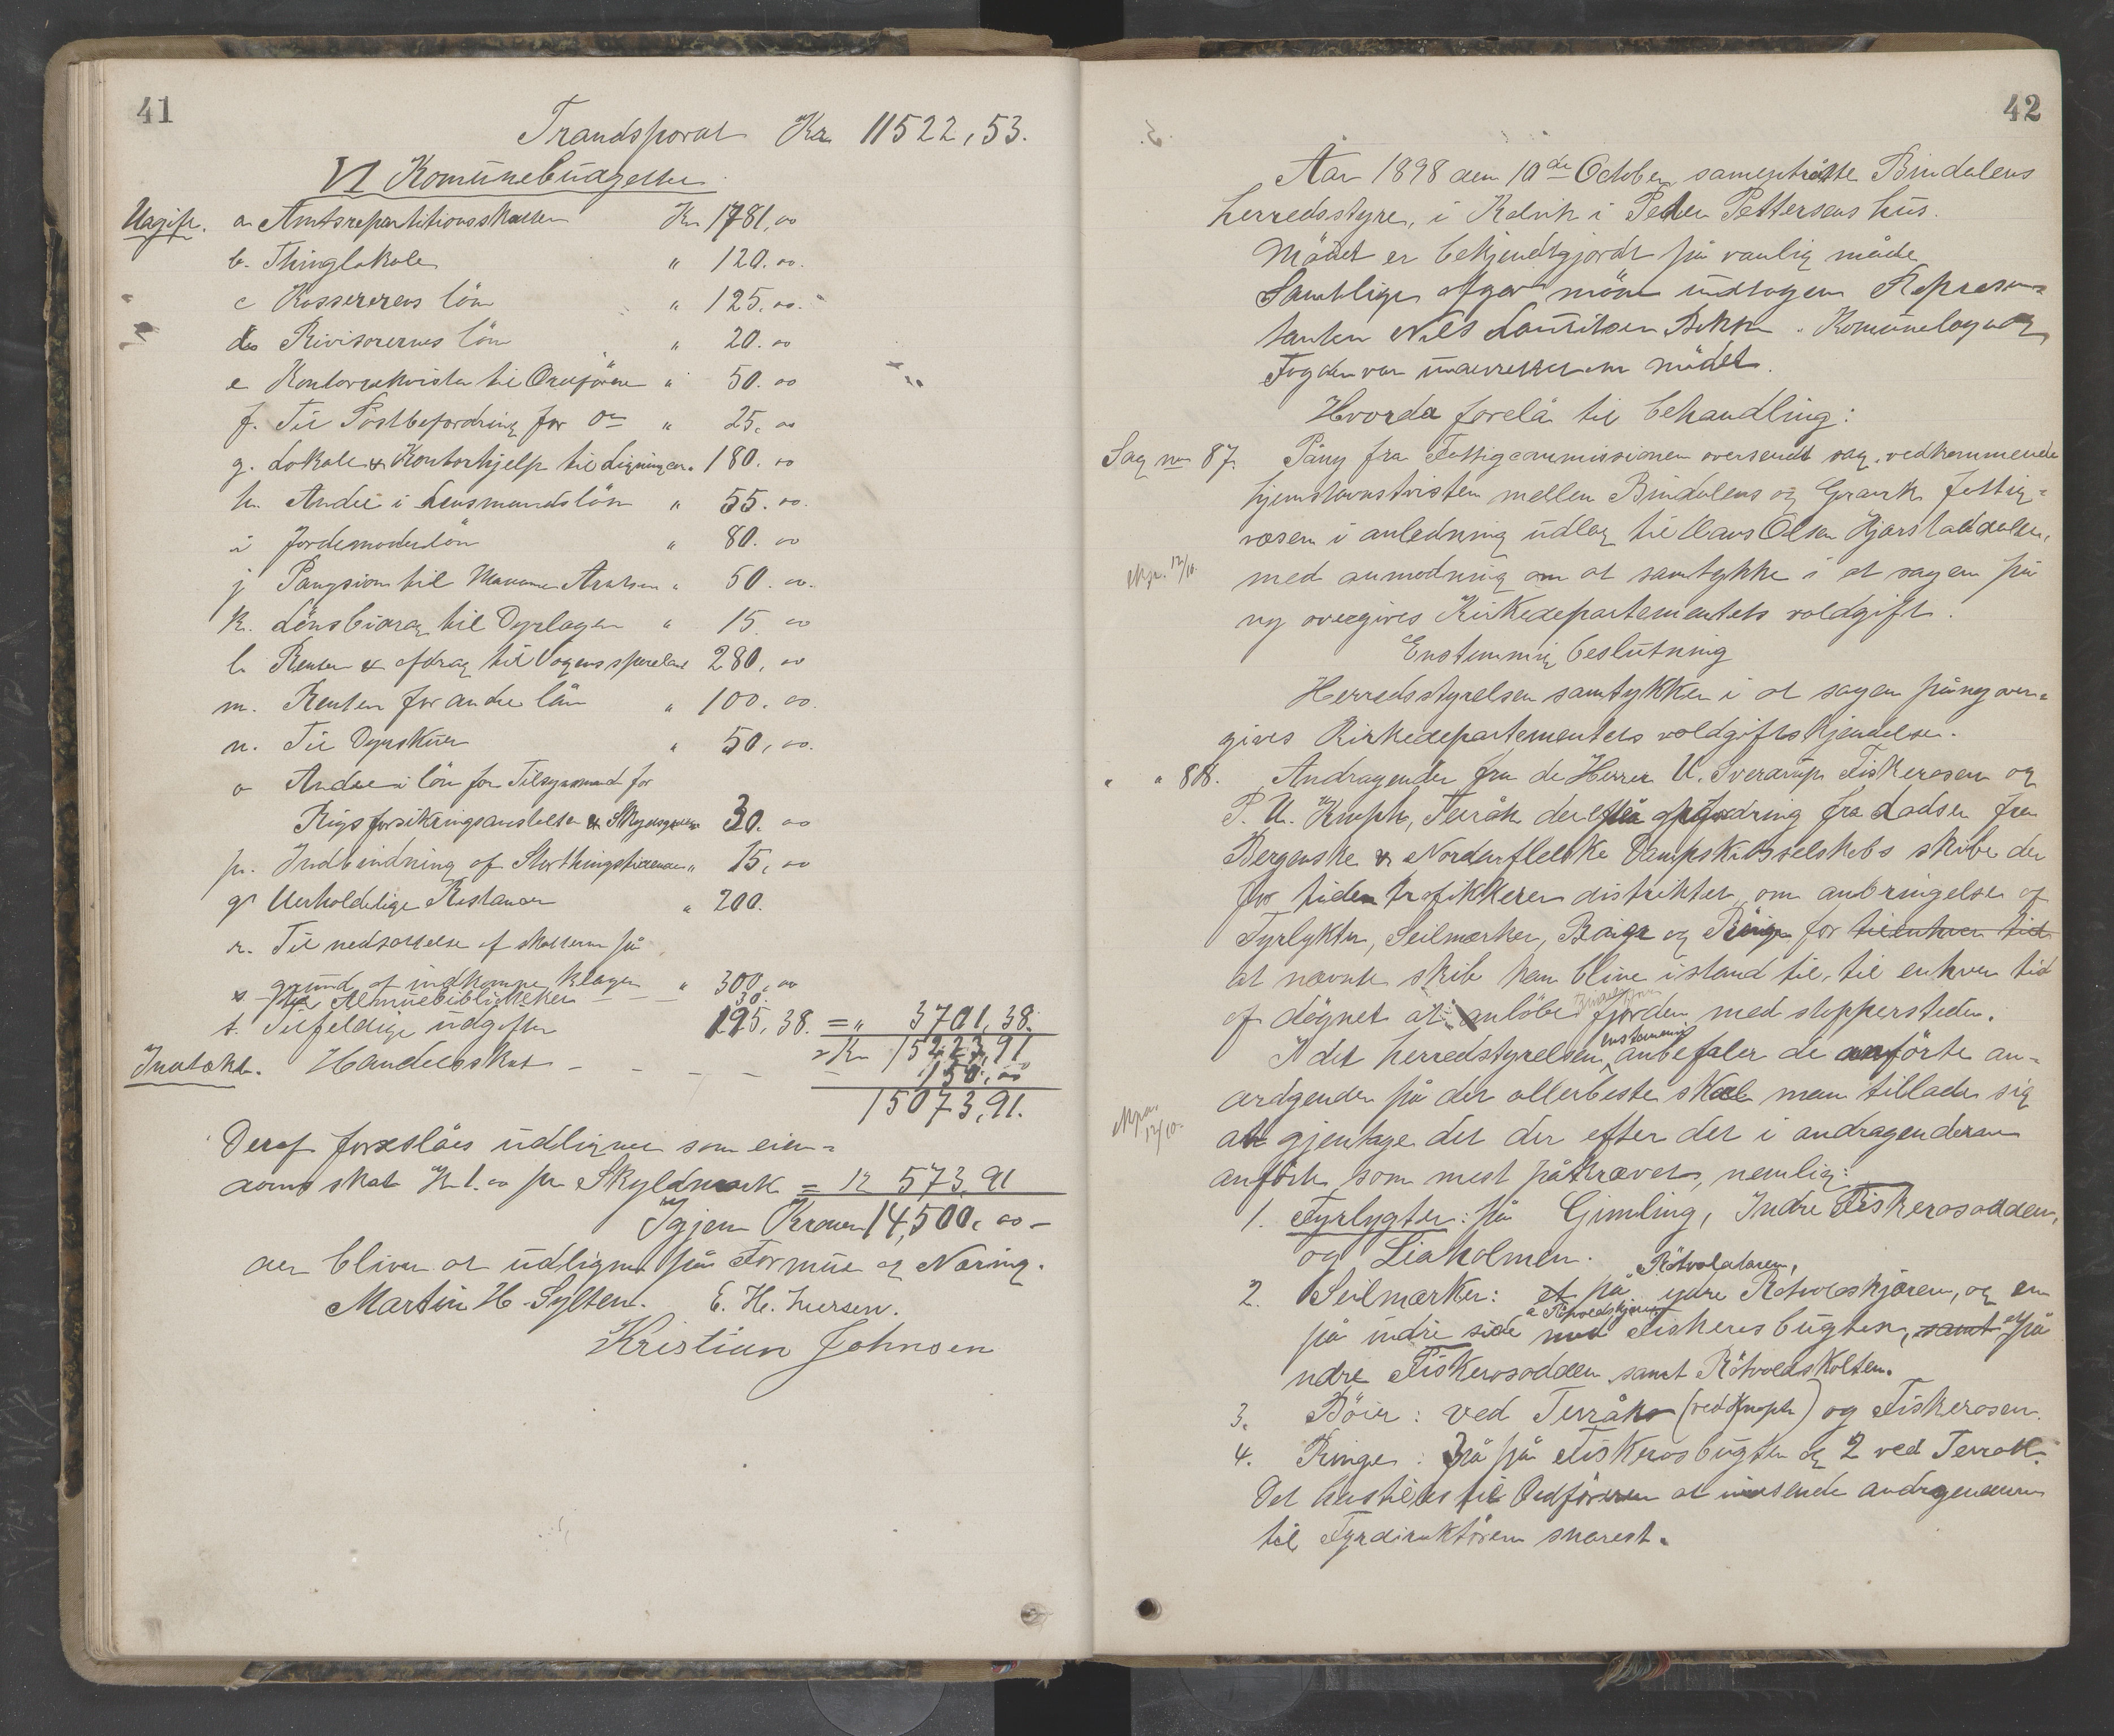 41
Trandsporat Kr 11522,53.
VI Komünebüdgettet
Udgift. a. Amtsrepartitionsskatten Kr 1781,00
b. Thinglokale " 120.00.
c Kassererens lön " 125.00.
d. Rivisorernes lön " 20.00
e Kontorrekvisita til Ordföreren " 50.00
f. Til Postbefordring for do " 25,00
g. Lokale & Kontorhjelp til Ligningen. 180.00
h. Andel i Lensmandslön " 55.00.
i Jordemoderlön " 80.00
j Pangsion til Madame Arntsen " 50.00.
k. Lönsbidrag til Dyrlægen " 15 00
l. Renter & afdrag til Vognsspordlaa 280,00
m. Renter for andre lån " 100.00.
n. Til Dyrskuer " 50,00.
o Andel i lön for Tilsynsmand for
Rigsforsikringsanstalten & 30.00
p. Indbindning af Storthingstidende " 15,00
q Uerholdelige Restancer " 200.
r. Til nedsættelse af skatterne på
grund af indkomne klager " 300,00
s Til Almuebibliotheker 30.
t. Tilfeldige üdgifter 195,38. = " 3701,38.
Kr 15223,91
Indtækt. Handelsskat - - - - 150,00
15073,91.
Deraf foreslåes üdlignet som eien=
domsskat Kr 1.00 pr Skyldmark = " 573,91
Igjen Kroner 14,500,00 -
der bliver at üdligne på Formüe og Næring.
Martin H. Sylten. E. H. Iversen.
Kristian Johnsen
42
Aar 1898 den 10de October samentrådte Bindalens
herredsstyre, i Kalvik i Peder Pettersens hüs.
Mödet er bekjendtgjordt på vanlig måde
Samtlige afgav möde undtagen Repræsen=
tanten Nils Lauritsen Bekken. Komunelæge og
Fogden var ünderrettet om mödet.
Hvorda forelå til behandling:
Sag no 87. Påny fra Fattigcommissionen oversendt sag vedkommende
hjemstavnstvisten mellem Bindalens og Granes fattig=
væsen i anledning üdlæg til Hans Olsen Hjorstaddalen,
exp. 12/10.
med anmodning om at samtykke i at sagen på
ny overgives Kirkedepartementets voldgift.
Enstemmig beslütning
Herredsstyrelsen samtykker i at sagen påny over=
gives Kirkedepartementets voldgiftskjendelse.
" " 88. Andragender fra de Herrer U. Sverdrup Fiskerosen og
P. U. Knoph, Terråk der efter opfordring fra Lodsen fra
Bergenske & Nordenfjeldske Dampskibsselskabs skibe der
for tiden trafikkerer distriktet, om anbringelse af
Fyrlykter, Seilmærker, Böier og Ringe for tilenhver tid
at nævnte skibe kan blive istand til, til enhver tid
af dögnet at anlöbe Bindalsfjorden med stoppersteder.
I det herredstyrelsen enstemmig anbefaler de anförte an=
dragender på det allerbeste skal man tillade sig
exp. 12/10.
at gjentage det der efter det i andragenderne
anfört som mest påkrævet, nemlig:
1. Fyrlygter: på Gimling, Indre Fiskerosodden,
og Liaholmen.
Rötvoldtaren,
2. Seilmærker: et på ydre Rötvoldskjæren, og en
på indre side a Rötvoldskjæren med Fiskerosbügten, samt et på
ndre Fiskerosodden samt Rötvoldskolten.
3. Böier: ved Terråk (ved Knoph) og Fiskerosen.
4. Ringe: 3 på på Fiskerosbügten og 2 ved Terråk.
Det henstilles til Ordföreren at indsende andragenderne
til Fyrdirektören snarest.